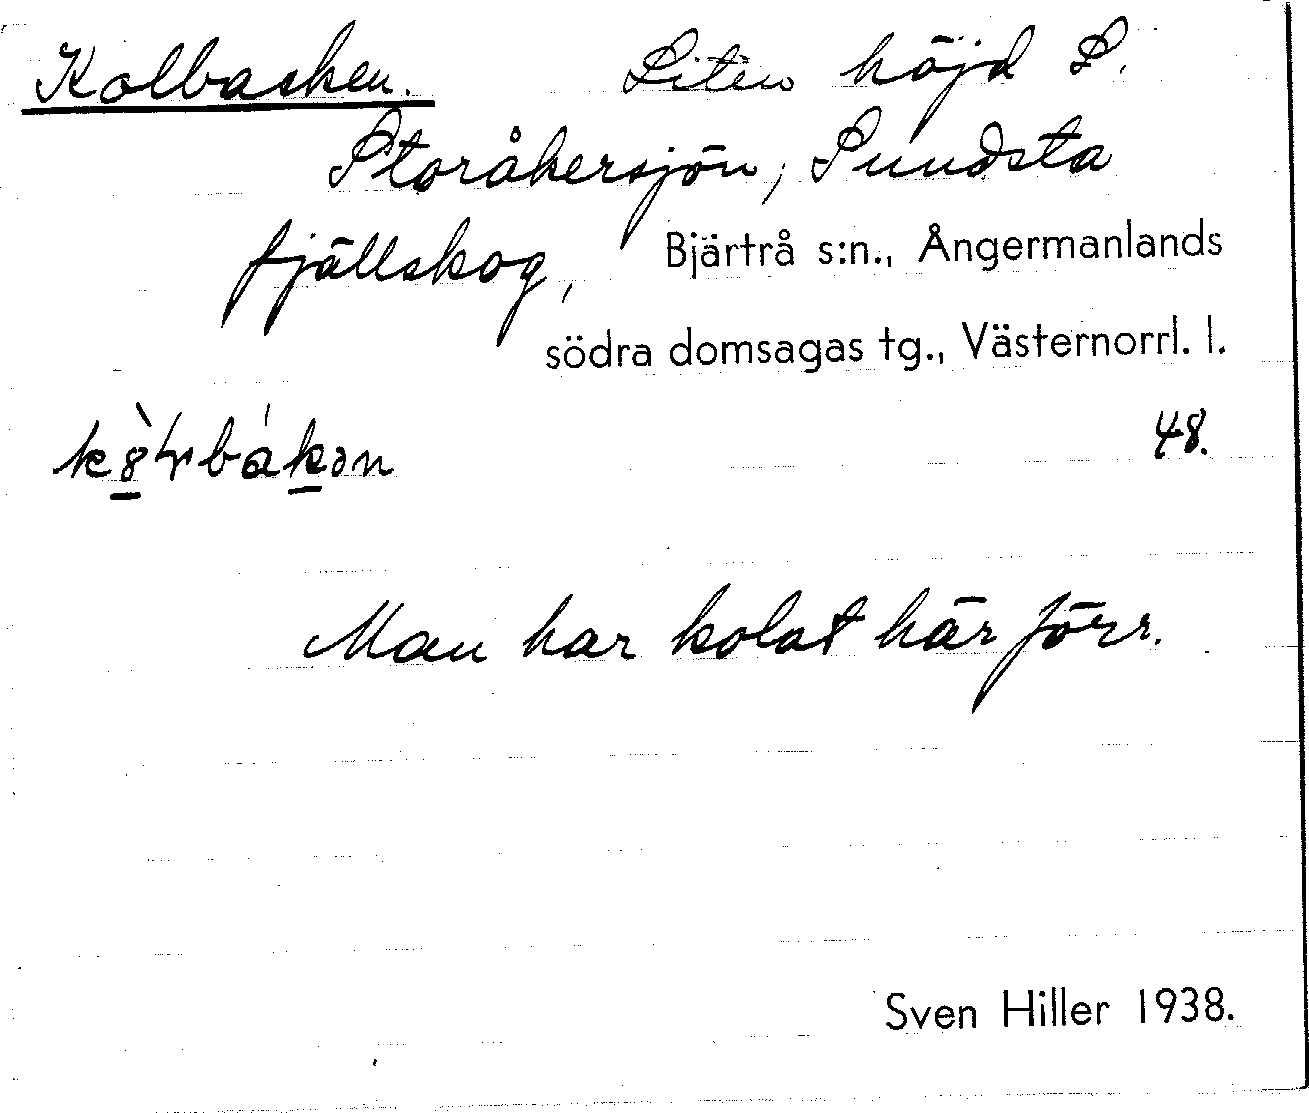 Kolbacken. Liten höjd S.
Storåkersjön, Sundsta
fjällskog, Bjärtrå s:n., Ångermanlands
södra domsagas tg., Västernorrl. l.
48.
Man har kolat här förr.
Sven Hiller 1938.